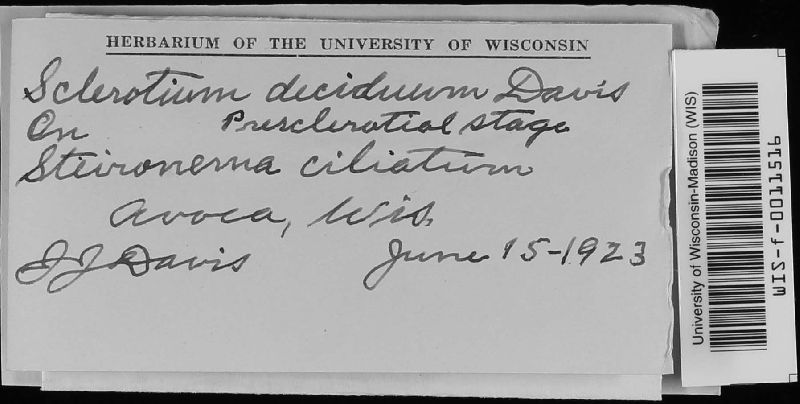 HERBARIUM OF THE UNIVERSITY OF WISCONSIN
Sclerotium deciduum Davis
On Presclerotial stage
Steironema ciliatum
Avoca, Wis.
JJ Davis June 15-1923
University of Wisconsin-Madison (WIS)
WIS-f-0011516